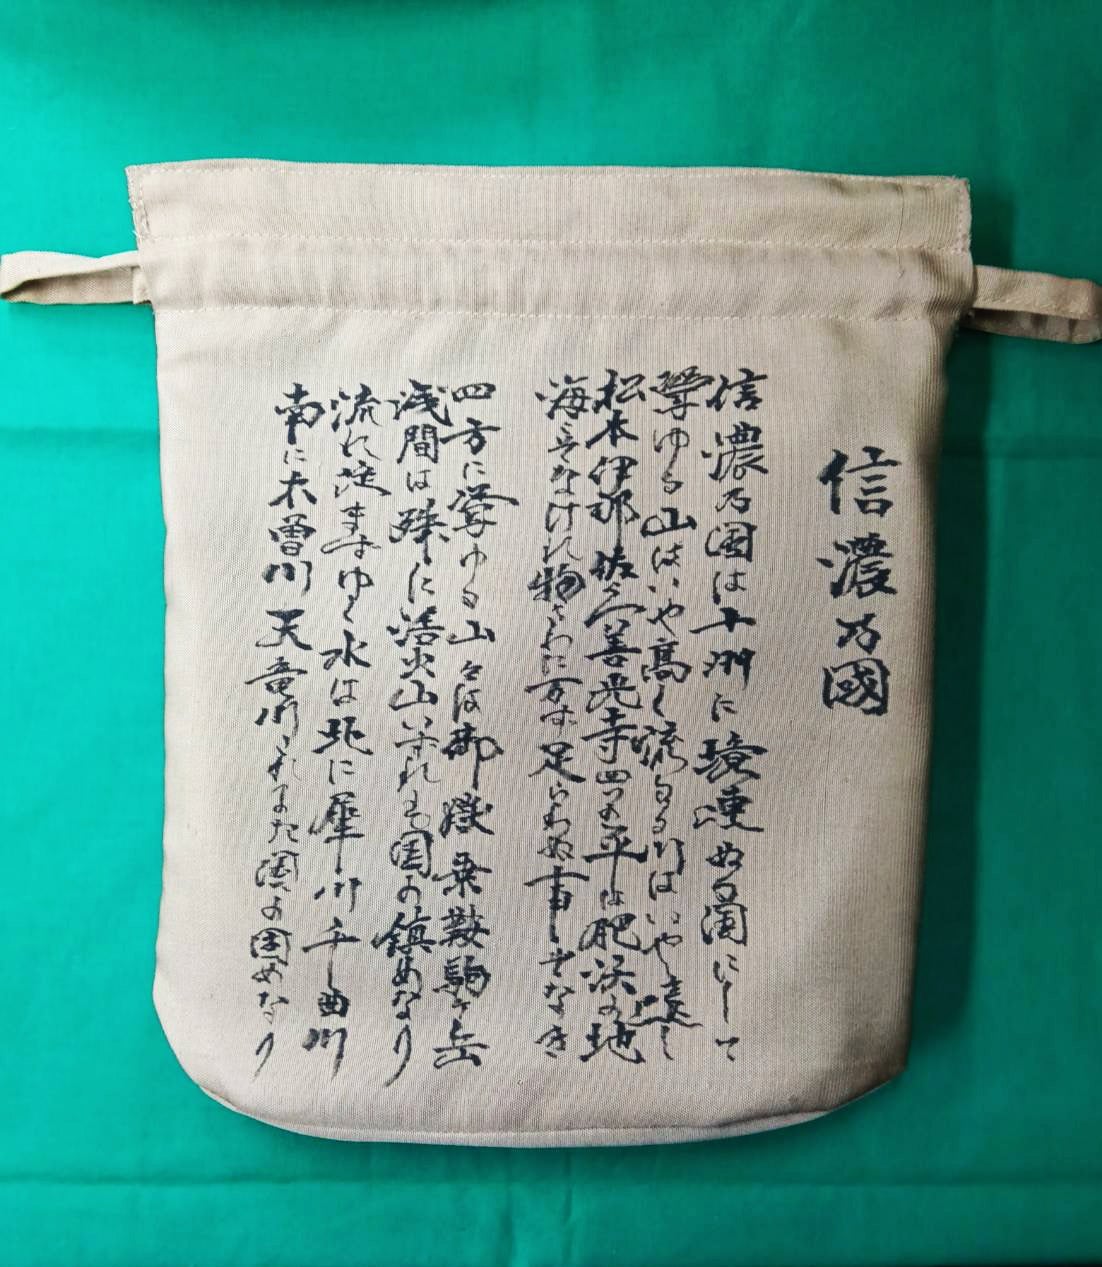 信濃乃國
信濃乃国は十洲に境連ぬる国にして
聳ゆる山はいや高く流るる川はいや遠し
松本伊那佐久善光寺四つの平は肥沃の地
海こそなけれ物さわに万ず足らわぬ事ぞなき
四方に聳ゆる山々は御嶽乗鞍駒ヶ岳
浅間は殊に活火山いずれも国の鎮めなり
流れ淀まずゆく水は北に犀川千曲川
南に木曽川天竜川これまた国の固めなり